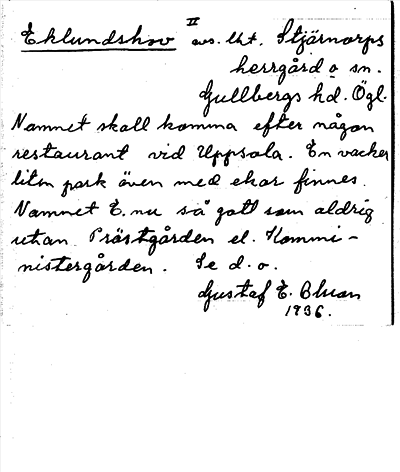 II
Eklundshov avs. lht. Stjärnorps
herrgård o sn.
Gullbergs hd. Ögl.
Namnet skall komma efter någon
restaurant vid Uppsala. En vacker
liten park även med ekar finnes.
Namnet E. nu så gott som aldrig
utan Prästgården el. Kommi-
nistergården. Se d. o.
Gustaf E. Bluan
1936.